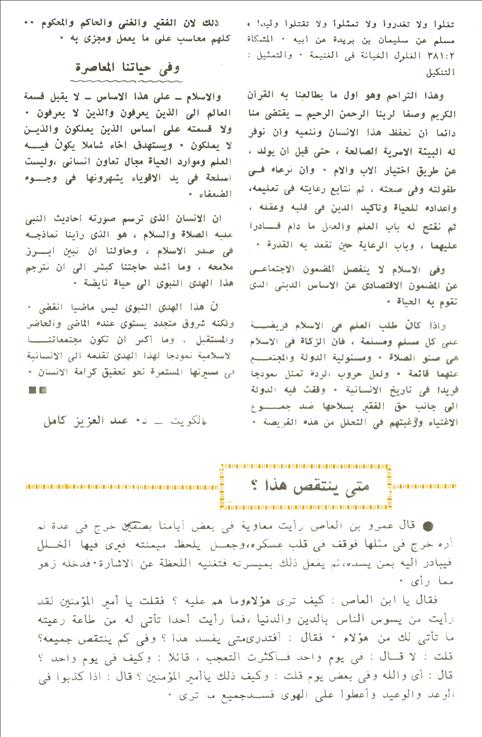 تغلوا ولا تغدروا ولا تمثلوا ولا تقتلوا وليدا ،
مسلم عن سليمان بن بريدة عن أبيه ٠ المشكاة
٣٨١:٢ الغلول الخيانة فى الغنيمة ٠ والتمثيل :
التنكيل
وهذا التراحم وهو أول ما يطالعنا به القرآن
الكريم وصفا لربنا الرحمن الرحيم ــ يقتضى منا
دائما أن نحفظ هذا الانسان وننميه وأن نوفر
له البيئة الاسرية الصالحة ، حتى قبل أن يولد ،
عن طريق اختيار الاب والام ٠ وأن نرعاه فى
طفولته وفى صحته ، ثم نتابع رعايته فى تعليمه،
واعداده للحياة وتأكيد الدين فى قلبه وعقله ،
ثم نفتح له باب العلم والعمل ما دام قــادرا
عليهما ، وباب الرعاية حين تقعد به القدرة ٠
وفى الاسلام لا ينفصل المضمون الاجتماعـى
عن المضمون الاقتصادى عن الاساس الدينى الذى
تقوم به الحياة ٠
واذا كان طلب العلم هى الاسلام فريضــة
على كل مسلم ومسلمة ، فان الزكاة فى الاسلام
هى صنو الصلاة ٠ ومسئولية الدولة والمجتمــع
عنهما قائمة ٠ ولعل حروب الردة تمثل نموذجا
فريدا فى تاريخ الانسانية ٠ وقفت فيه الدولة
الى جانب حق الفقير بسلاحها ضد جمــــوع
الاغنياء ورغبتهم فى التحلل من هذه الفريضة ٠
ذلك لان الفقير والغنى والحاكم والمحكوم ٠٠
كلهم محاسب على ما يعمل ومجزى به ٠
وفى حياتنا المعاصرة
والاسلام ــ على هذا الاساس ــ لا يقبل قسمة
العالم الى الذين يعرفون والذين لا يعرفون ٠
ولا قسمته على أساس الذين يملكون والذيــن
لا يملكون ٠ ويستهدف اخاء شاملا يكون فيــه
العلم وموارد الحياة مجال تعاون انسانى ،وليست
أسلحة فى يد الاقوياء يشهرونها فى وجــوه
الضعفاء ٠
ان الانسان الذى ترسم صورته أحاديث النبى
عليه الصلاة والسلام ، هو الذى رأينا نماذجـه
فى صدر الاسلام ، وحاولنا ان نبين ابــرز
ملامحه ، وما أشد حاجتنا كبشر الى أن نترجم
هذا الهدى النبوى الى حياة نابضة ٠
ن هذا الهدى النبوى ليس ماضيا انقضى ٠
ولكنه شروق متجدد يستوى عنده الماضى والحاضر
والمستقبل ٠ وما أكبر ان تكون مجتمعاتنــا
لاسلامية نموذجا لهذا الهدى تقدمه الى الانسانية
فى مسيرتها المستمرة نحو تحقيق كرامة الانسان ٠
الكويت ــ د٠ عبد العزيز كامل
متى ينتقص هذا ؟
● قال عمرو بن العاص رأيت معاوية فى بعض أيامنا بصفين خرج فى عدة لم
أره خرج فى مثلها فوقف فى قلب عسكره،وجعـل يلحظ ميمنته فيرى فيها الخلل
فيبادر اليه بمن يسده،ثم يفعل ذلك بميسرته فتغنيه اللحظة عن الاشارة٠فدخله زهو
مما رأى ٠
فقال يا ابن العاص : كيف ترى هؤلاء وما هم عليه ؟ فقلت يا أمير المؤمنين لقد
رأيت من يسوس الناس بالدين والدنيا ،فما رأيت أحدا تأتى له من طاعة رعيته
ما تأتى لك من هؤلاء ٠ فقال : أفتدرى متى يفسد هذا ؟ وفى كم ينتقص جميعه؟
قلت : لا قــال : فى يوم واحد فـأكثرت التعجب ، قائلا : وكيف فى يوم واحد ؟
قال : أى والله وفى بعض يوم قلت : وكيف ذلك ياأمير المؤمنين ؟ قال : اذا كذبوا فى
الوعد والوعيد وأعطوا على الهوى فسـدجميع ما ترى ٠